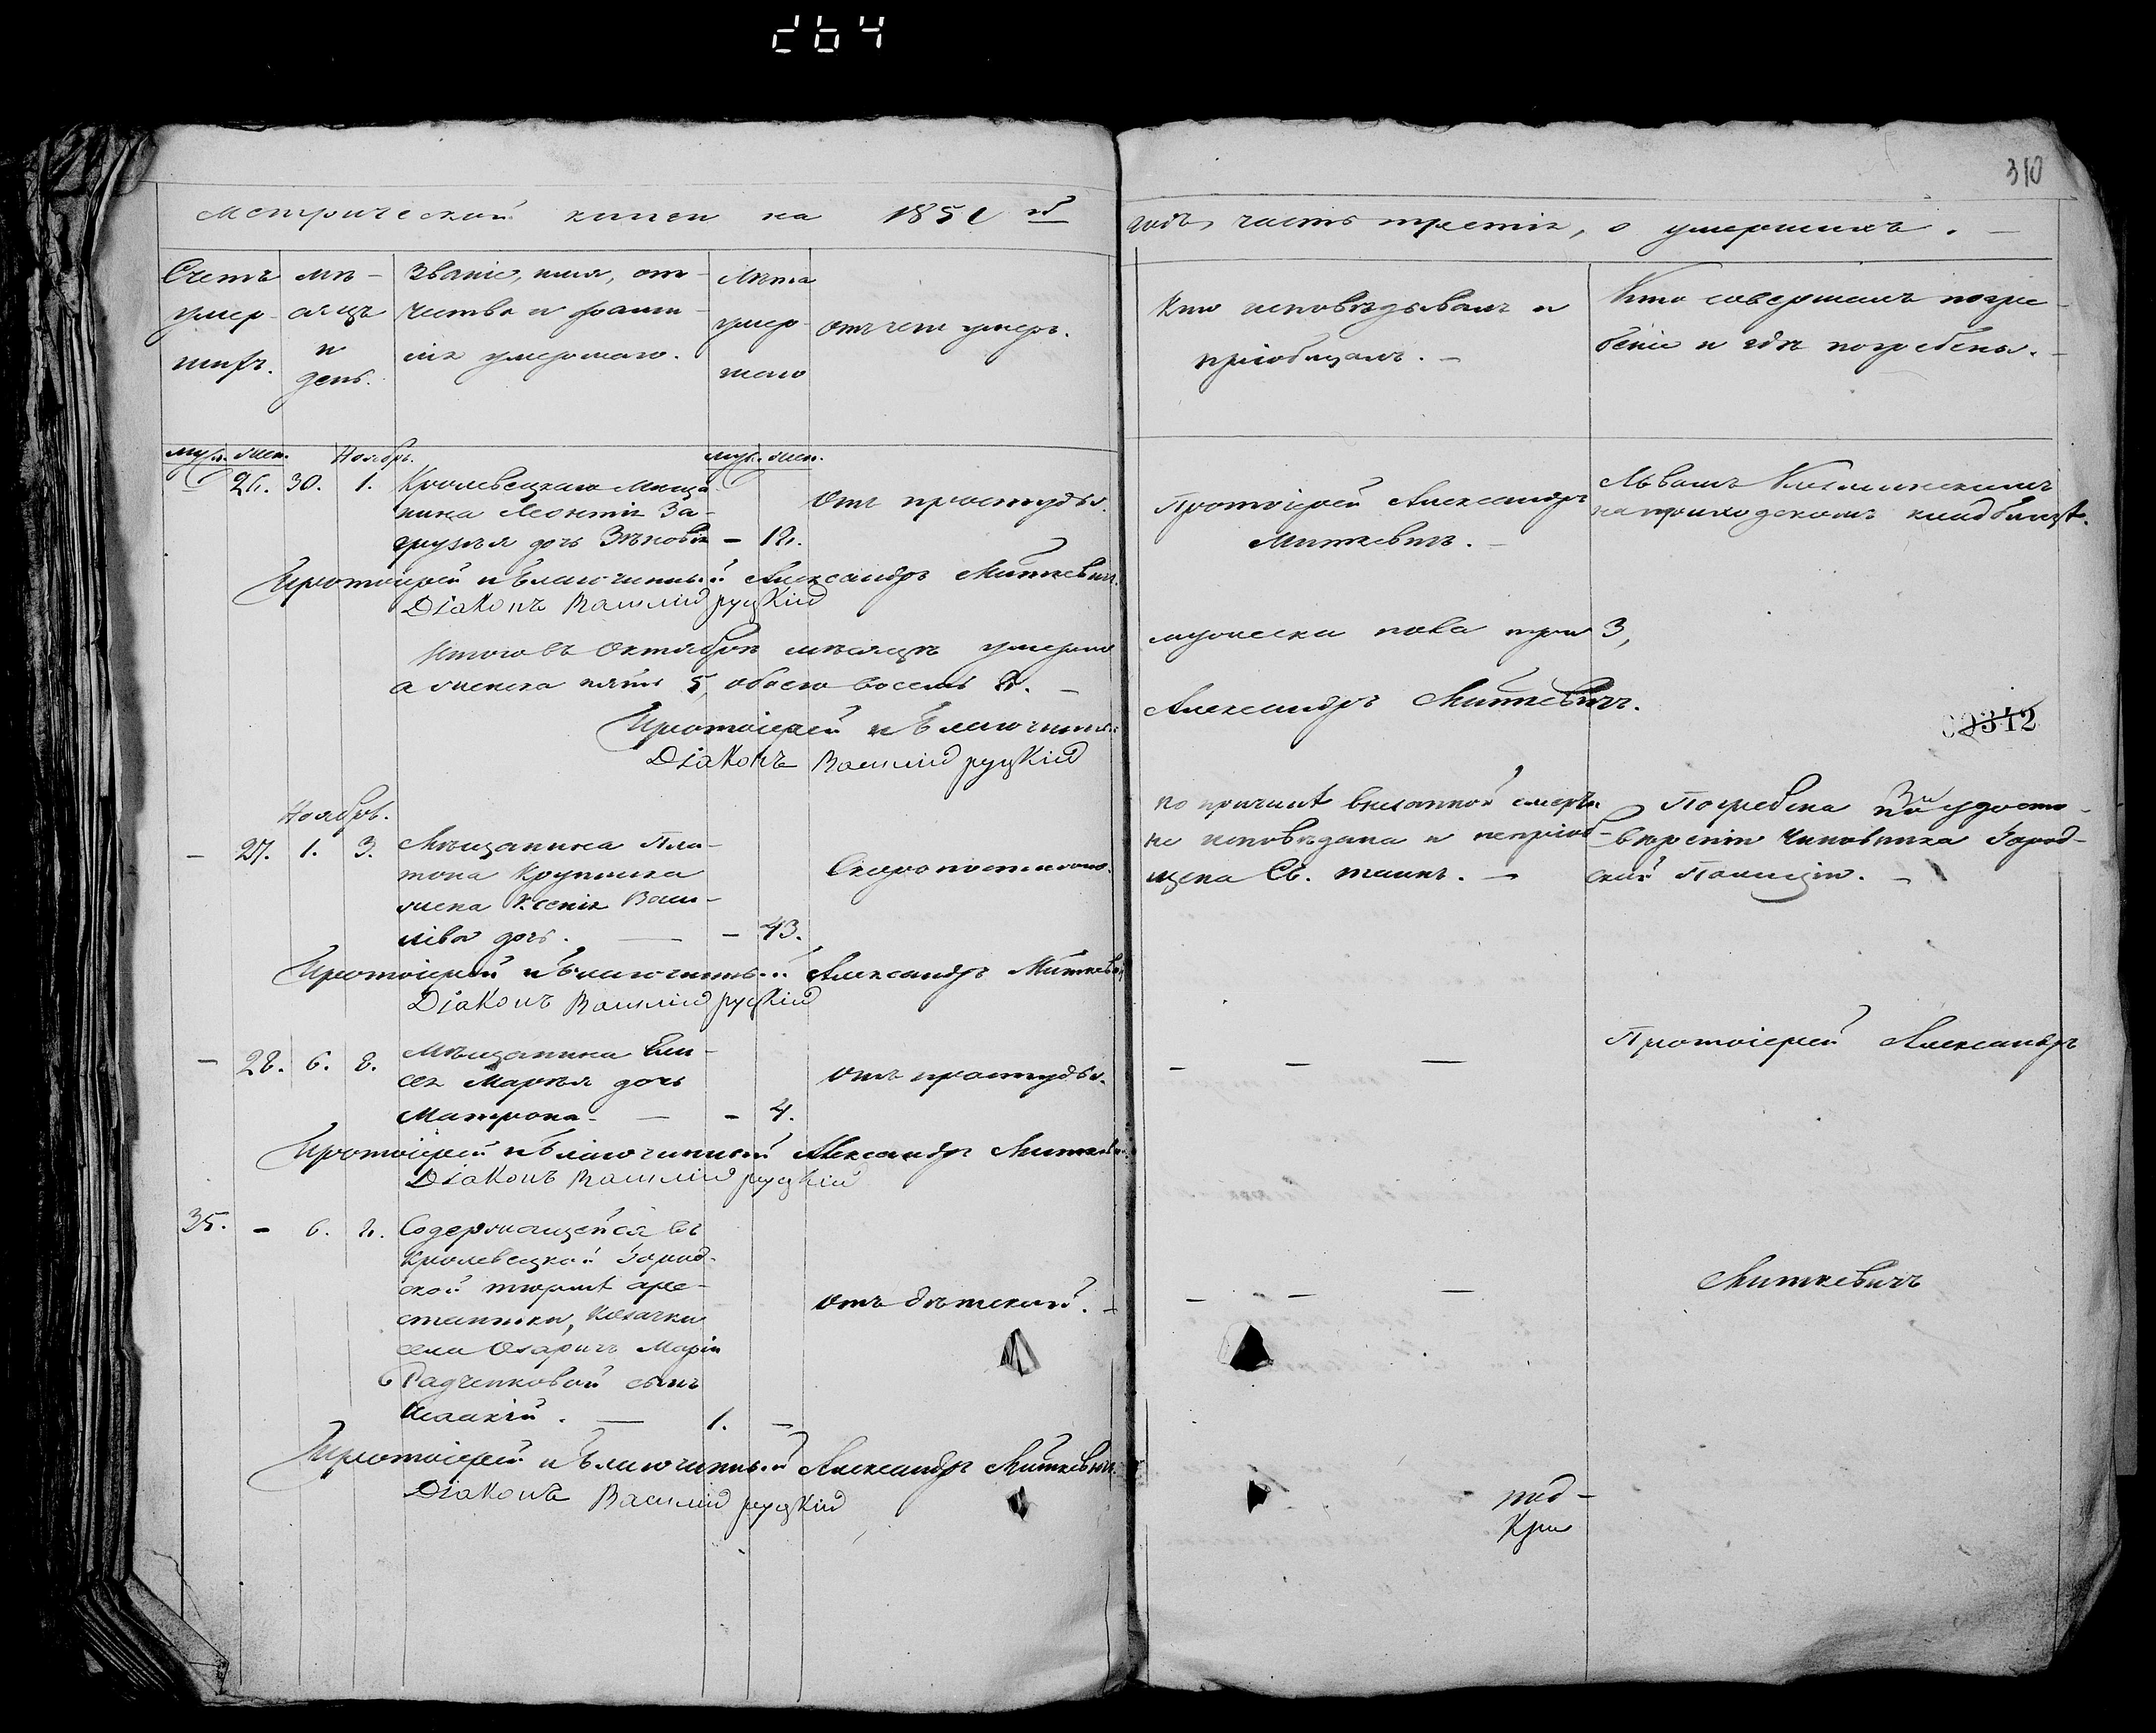 264
310
Метрической книги на 1851 й
годъ, часть третія, о умершихъ.
Счетъ умер- шихъ.
мѣ- сяцъ и день.
Званіе, имя, от- чество и фами- лія умершаго.
Лѣта умер- шаго
отъ чего умеръ.
Кто исповѣдывалъ и пріобщалъ. —
Кто совершалъ погре- беніе и гдѣ погребены. —
муж. жен. Ноябрь. муж. жен.
— 26. 30. 1. Кролевецкаго мѣща-
нина Леонтія За-
дочь Зѣновія — 12.
Отъ простуды.
Протоіерей Александръ
Миткевичъ. —
на приходскомъ кладбищѣ.
Протоіерей и Благочинный Александръ Миткевичъ.
Діаконъ Василій Руцкій
Итого въ Октябрѣ мѣсяцѣ умерло
мужеска пола три 3,
а женска пять 5, обоего восемь 8. —
Протоіерей и Благочинный
Александръ Миткевичъ.
Діаконъ Василій Руцкій
00312
Ноябрь.
— 27. 1. 3. Мѣщанина Пла-
тона Крупника
жена Ксенія Васи-
ліева дочь. — — 43.
Скоропостижно.
по причинѣ внезапной смерти
не исповѣдана и непріоб-
щена Св. таинъ. —
Погребена по удосто-
вѣренію Чиновника Город-
ской Полиціи. —
Протоіерей и Благочинный Александръ Миткевичъ
Діаконъ Василій Руцкій
— 28. 6. 8. Мѣщанина Ели-
сея Маркѣя дочь
Матрона — — 4.
отъ простуды.
— — —
Протоіерей Александръ
Протоіерей и Благочинный Александръ Миткевичъ
Діаконъ Василій Руцкій
35. — 6. 8. Содержащейся въ
Кролевецкой Город-
ской тюрмѣ аре-
стантки, козачки
села Оларичъ Маріи
Радченковой сынъ
— 1. —
отъ дѣтской. —
— — —
Миткевичъ
Протоіерей и Благочинный Александръ Миткевичъ.
Діаконъ Василій Руцкій
под-
Кри